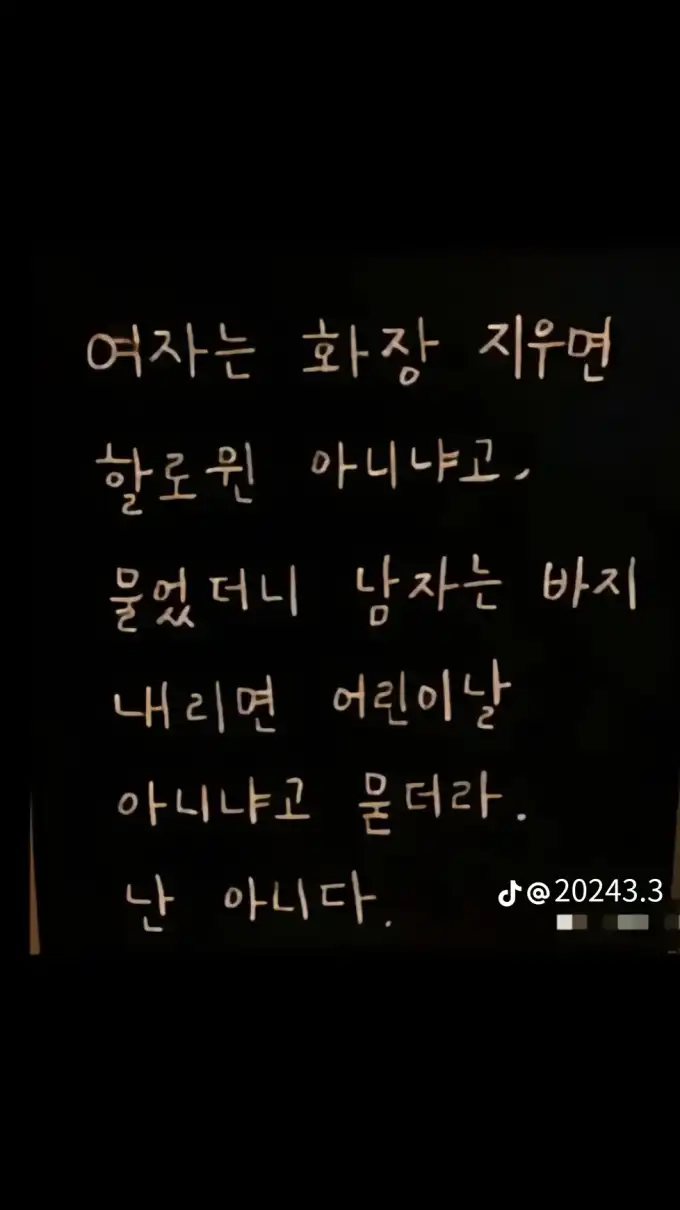 여자는 화장 지우면
할로윈 아니냐고,
물었더니 남자는 바지
내리면 어린이날
아니냐고 묻더라.
난 아니다.
@20243.3